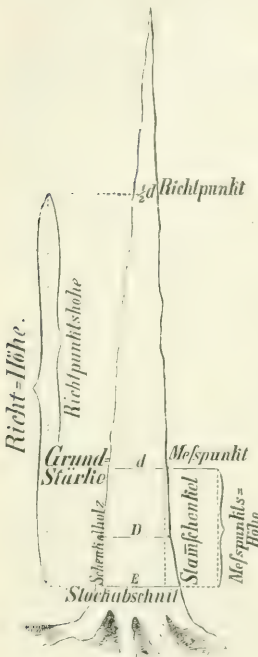 ½d Richtpunkt
Richt=Höhe.
Richtpunktshöhe
Grund=
Stärke
d
Meſspunkt
Schenkelholz
D
Stam̄schenkel
Meſspunkts=
Höhe
E
Stockabschnitt